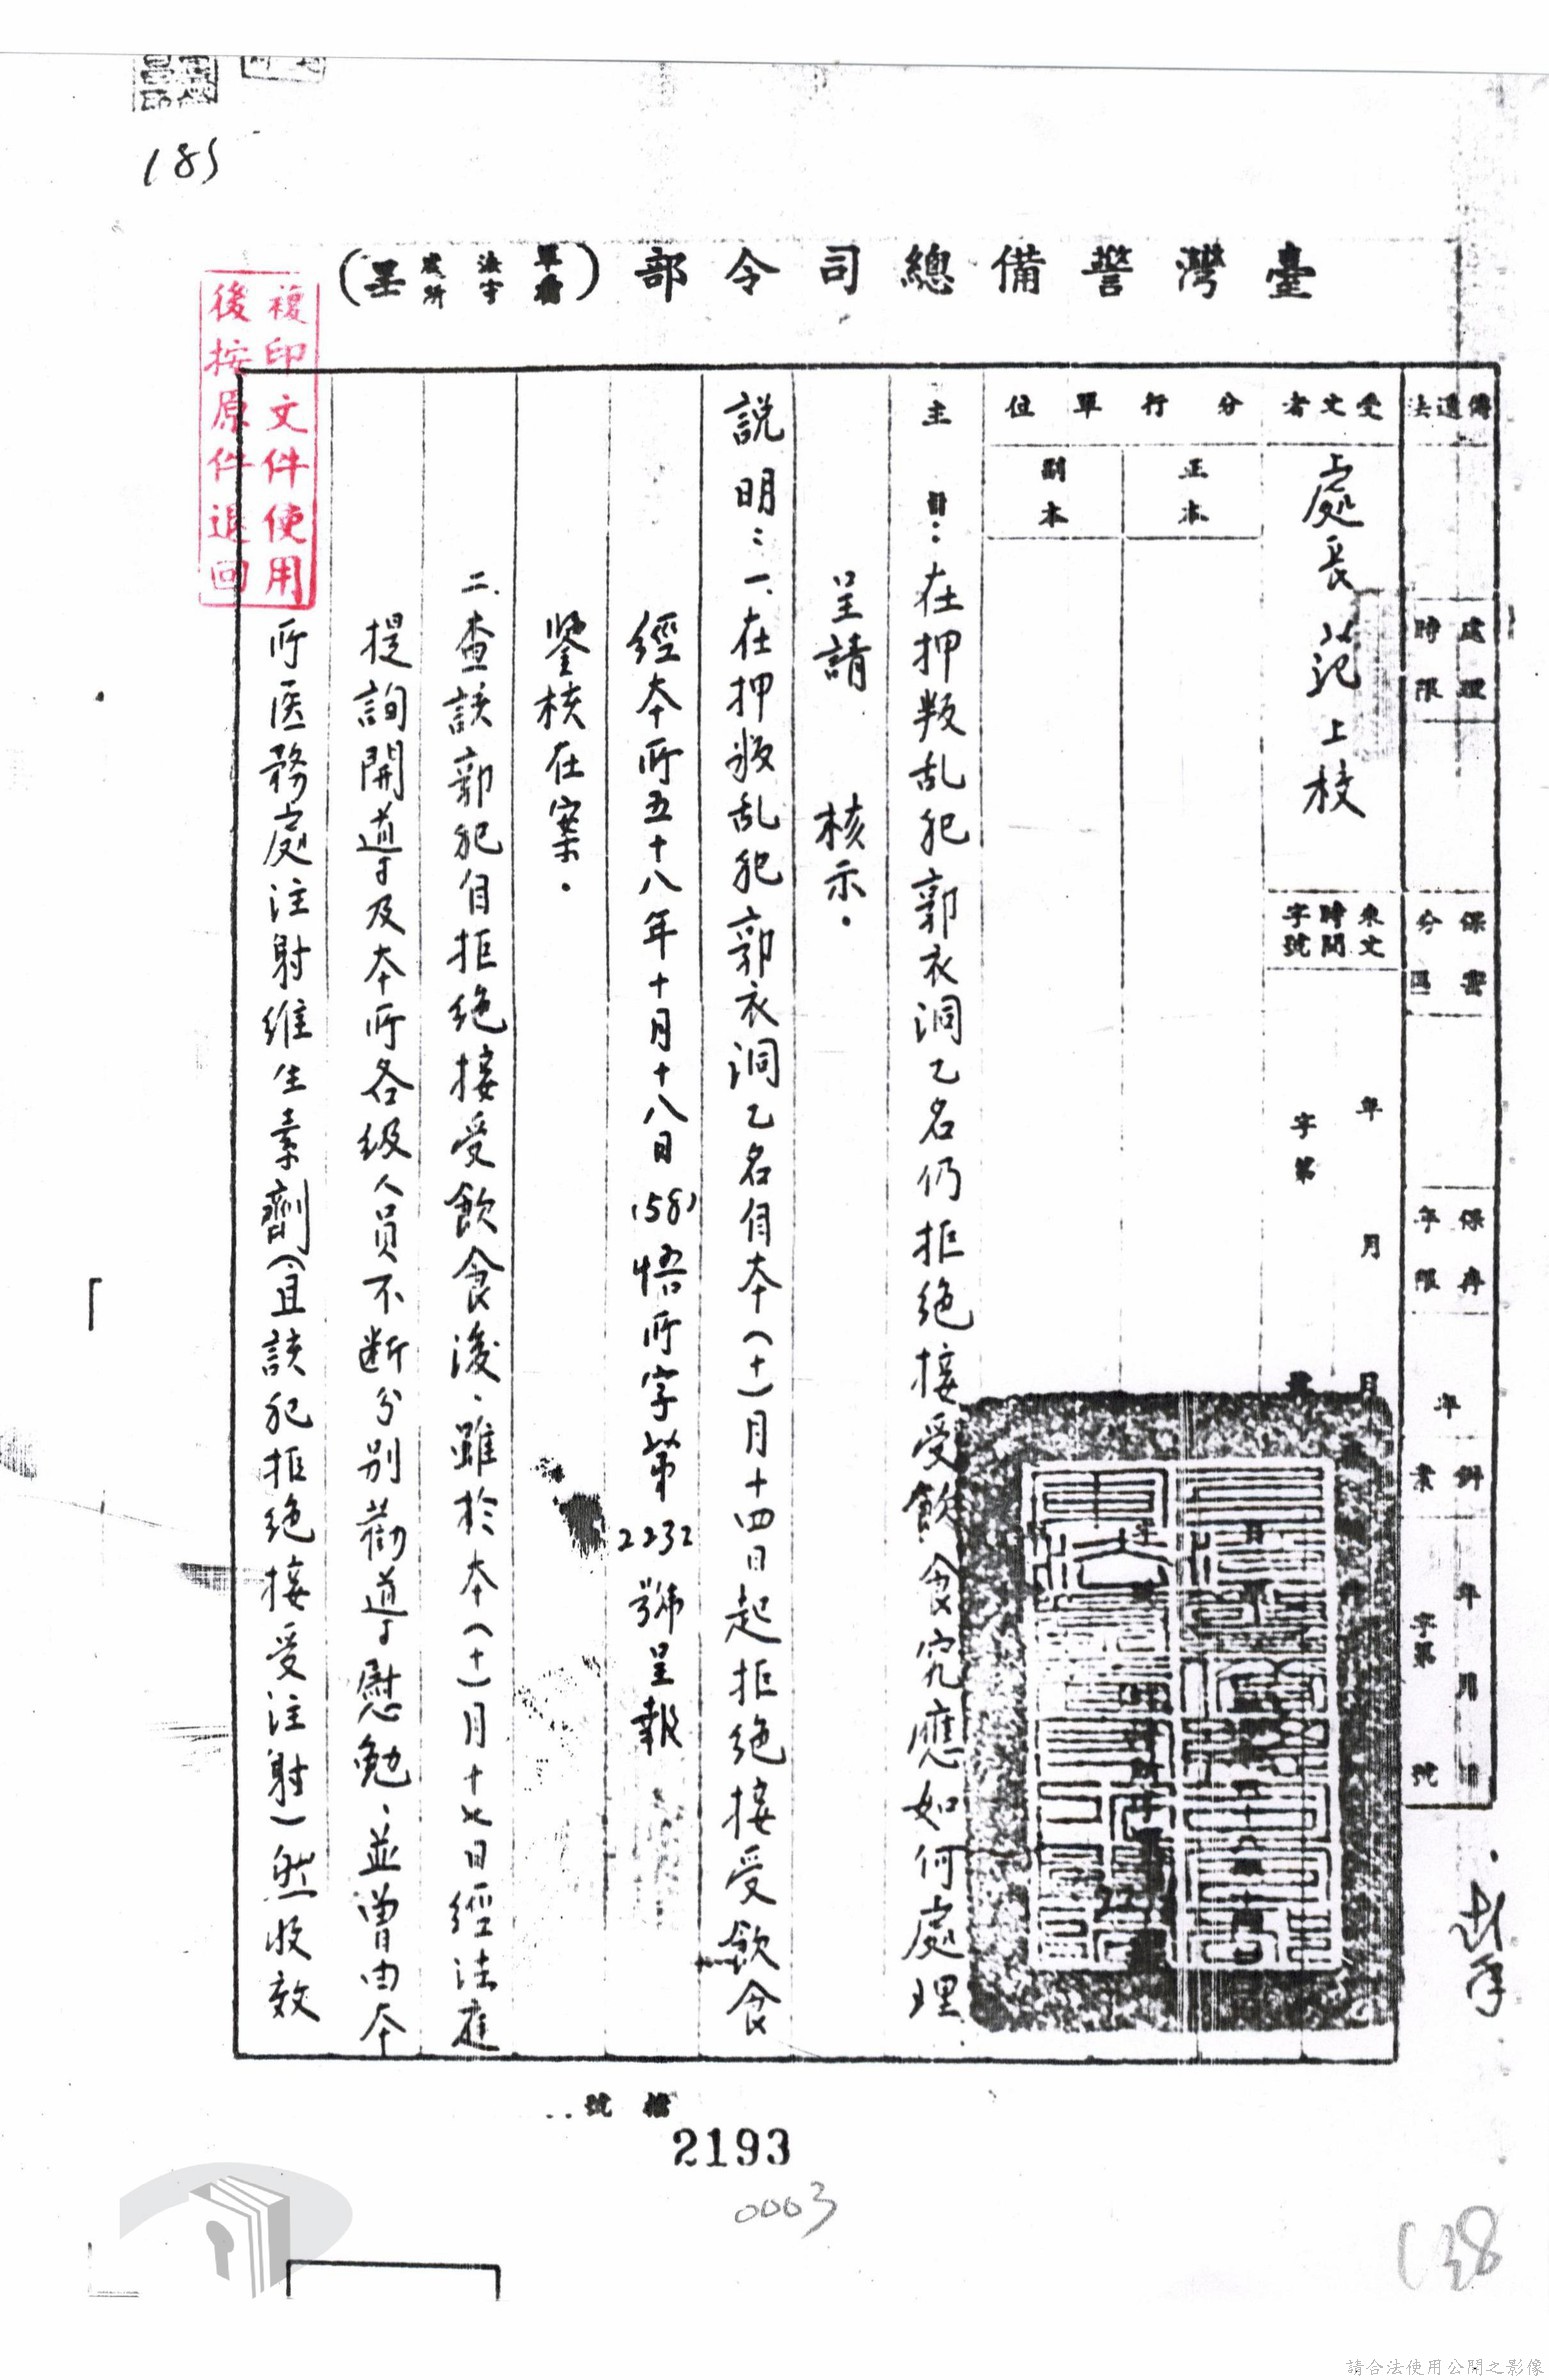 185
臺灣警備總司令部(軍法處看守所呈)
複印文件使用
後按原件退回
傳遞法
處理時限
保密區分
保存年限
年 月 日
字第 號
受文者
處長范上校
來文時間字號
年 月
字第
分行單位
正本
副本
主旨：在押叛乱犯郭衣洞乙名仍拒絕接受飲食究應如何處理
呈請 核示。
說明：一、在押叛乱犯郭衣洞乙名自本(十)月十四日起拒絕接受飲食
經本所五十八年十月十八日(58)悟所字第2232號呈報
鑒核在案。
二、查該郭犯自拒绝接受飲食後、雖於本(十)月十七日經法庭
提詢開導及本所各级人員不断分别勸導慰勉、並曾由本
所医務處注射维生素劑(且該犯拒绝接受注射)然收效
檔號
2193
0003
138
請合法使用公開之影像